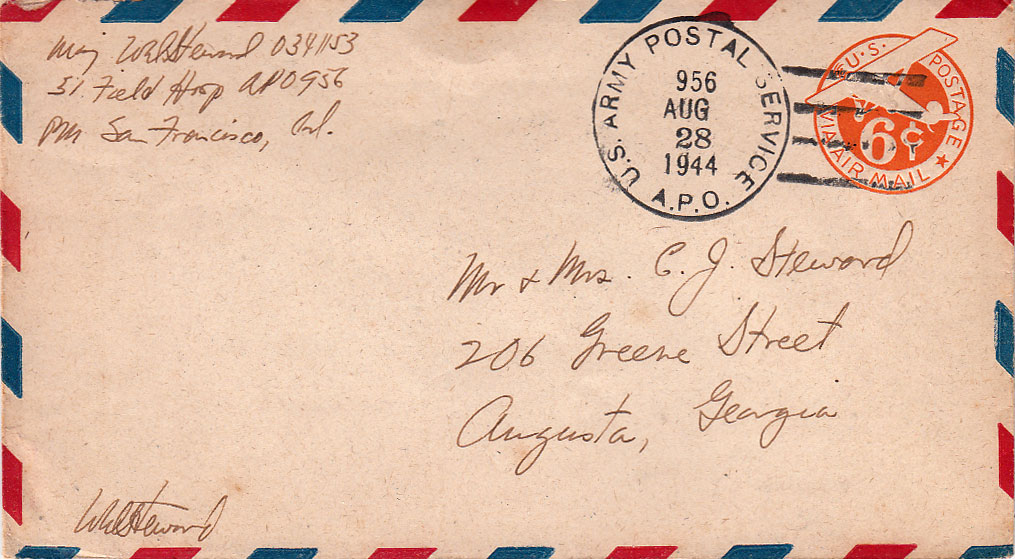 Maj WH Steward 0341153
51. Field Hosp APO 956
PM San Francisco, Cal.
U.S. ARMY POSTAL SERVICE
956
AUG
28
1944
A.P.O.
U.S. POSTAGE
6¢
VIA AIR MAIL
Mr & Mrs. C. J. Steward
206 Greene Street
Augusta, Georgia
WH Steward